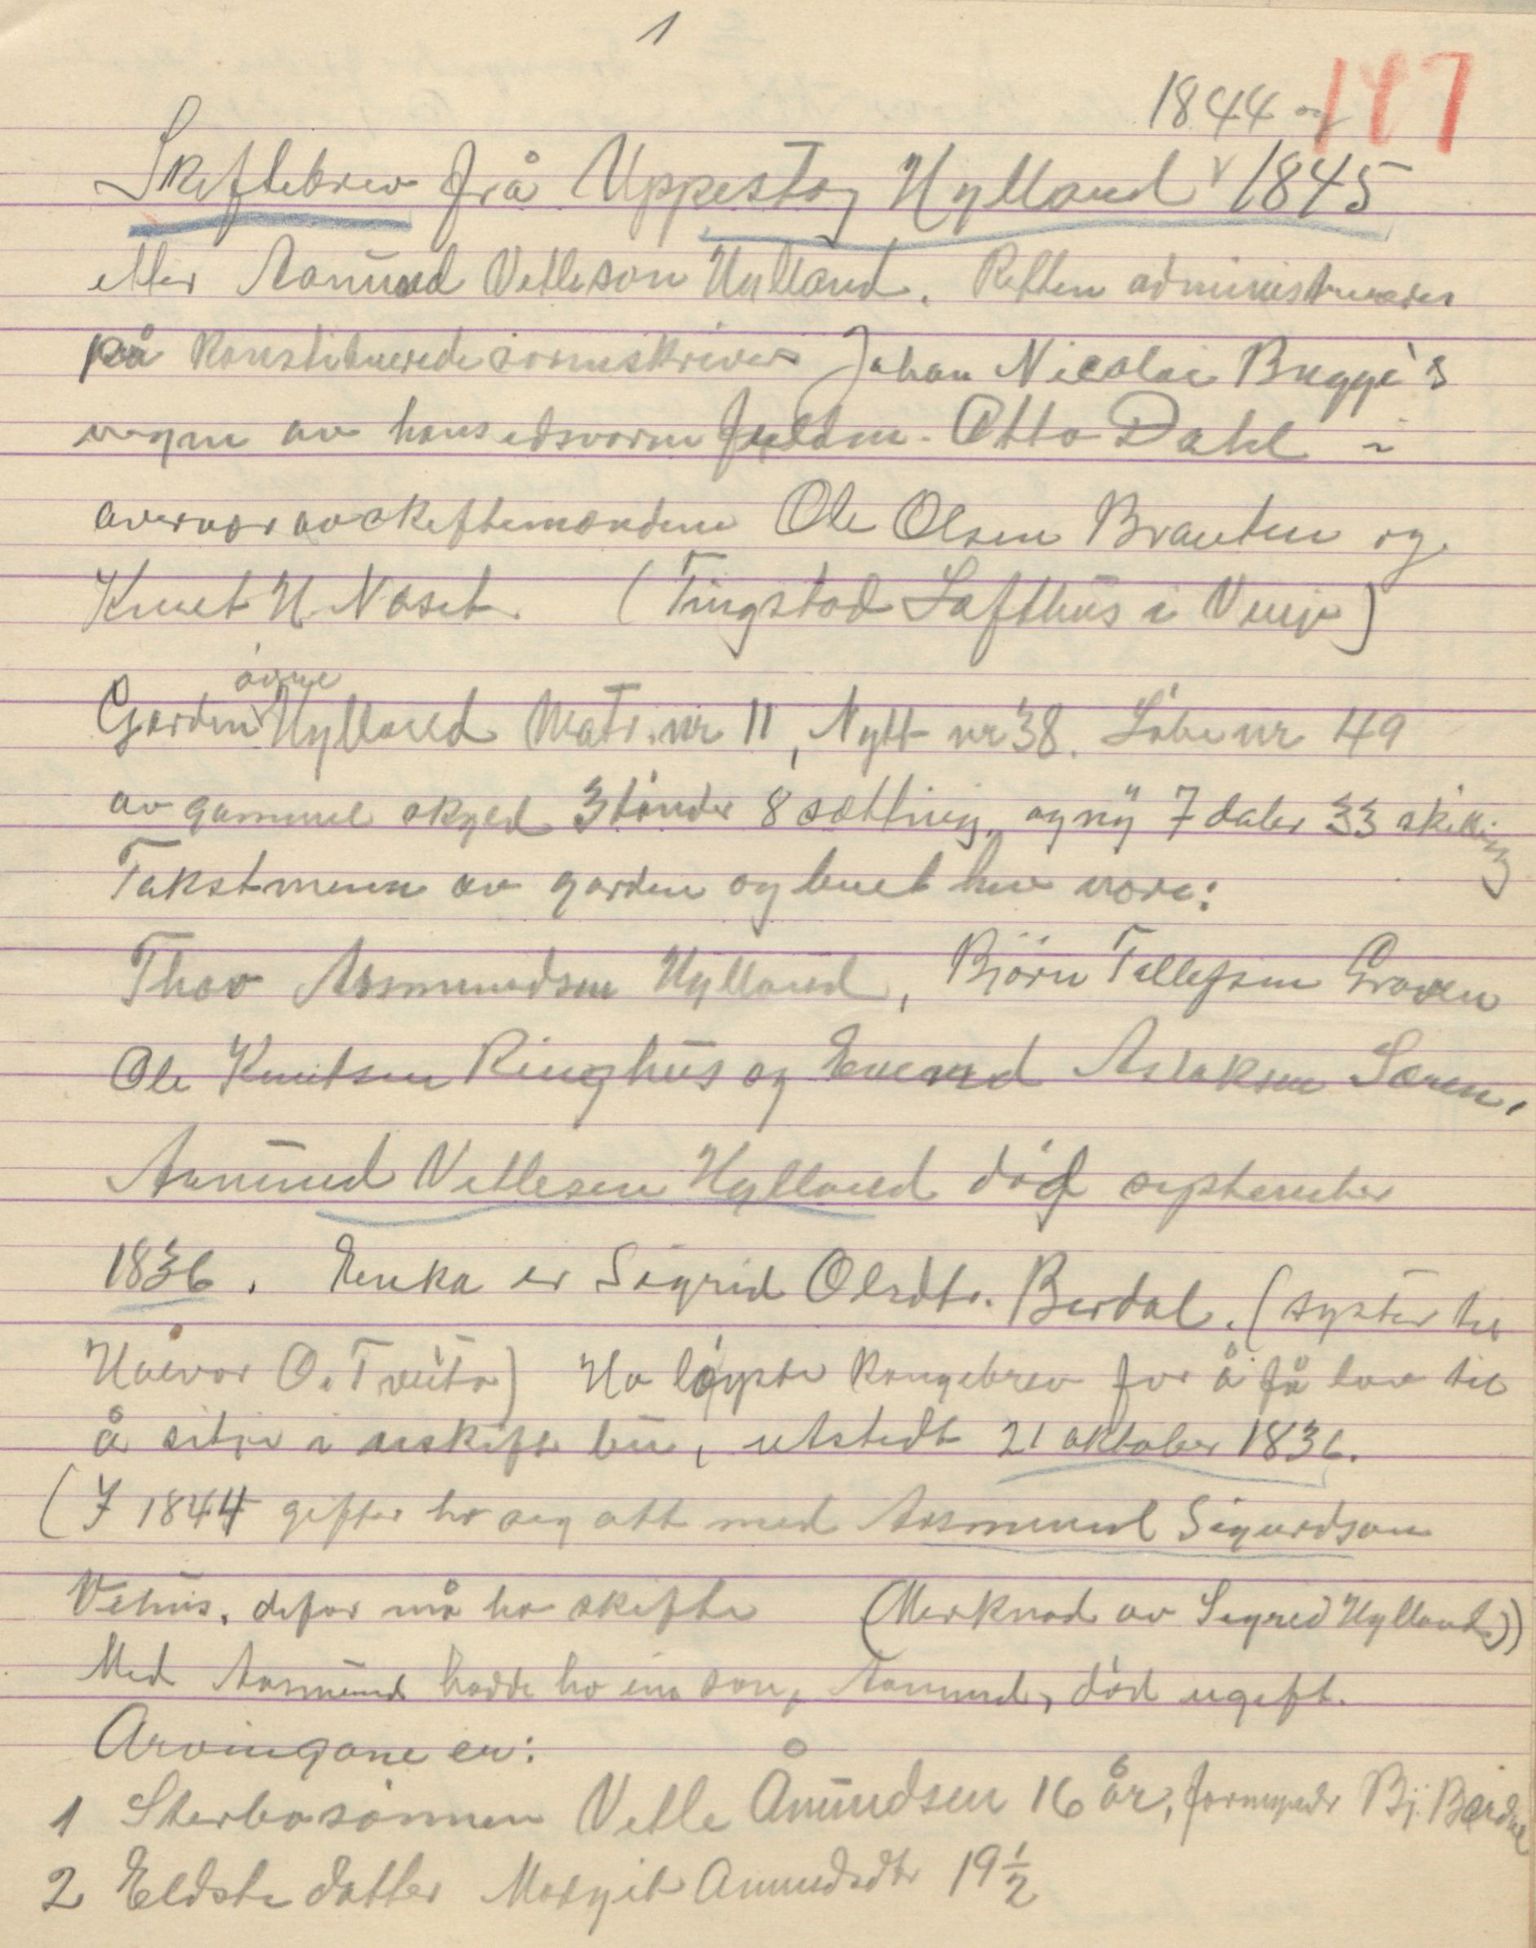 1
147
1844 og
Skiftebrev frå Uppestog Hylland 1845
etter Aamund Vetleson Hylland. Retten administreredes
på konstituerede sorenskriver Johan Nicolai Bugge's
vegne av hans edsvorne fuldm. Otto Dahl i
overvær av skiftemændene Ole Olsen Brauten og
Knut H. Naset. (Tingstad Lofthus i Vinje)
øvre
Garden Hylland Matr. nr 11, Nytt nr 38. Löbe nr 49
av gammel skyld 3 tönder 8 sætting, og ny 7 daler 33 skilling
Takstmenn av garden og buet her vore:
Thov Aasmundsen Hylland, Björn Tellefsen Graven
Ole Knutsen Ringhus og Evend Aslaksen Særen.
Aamund Vetlesen Hylland död september
1836. Enka er Sigrid Olsdtr. Berdal. (syster til
Halvor O. Tveito) Ho löyste kongebrev for å få lov til
å sitje i uskift bu, utstedt 21 oktober 1836.
(I 1844 gifter ho seg att med Aasmund Sigurdson
Vehus, defor må ho skifte (Merknad av Sigrid Hylland))
Med Aasmund hadde ho ein son, Aamund, död ugift.
Arvingane er:
1 Sterbosönnen Vetle Åmundsen 16 år, formynder Bj. Berdal
2 Eldste datter Margit Amundsdtr 19 1/2